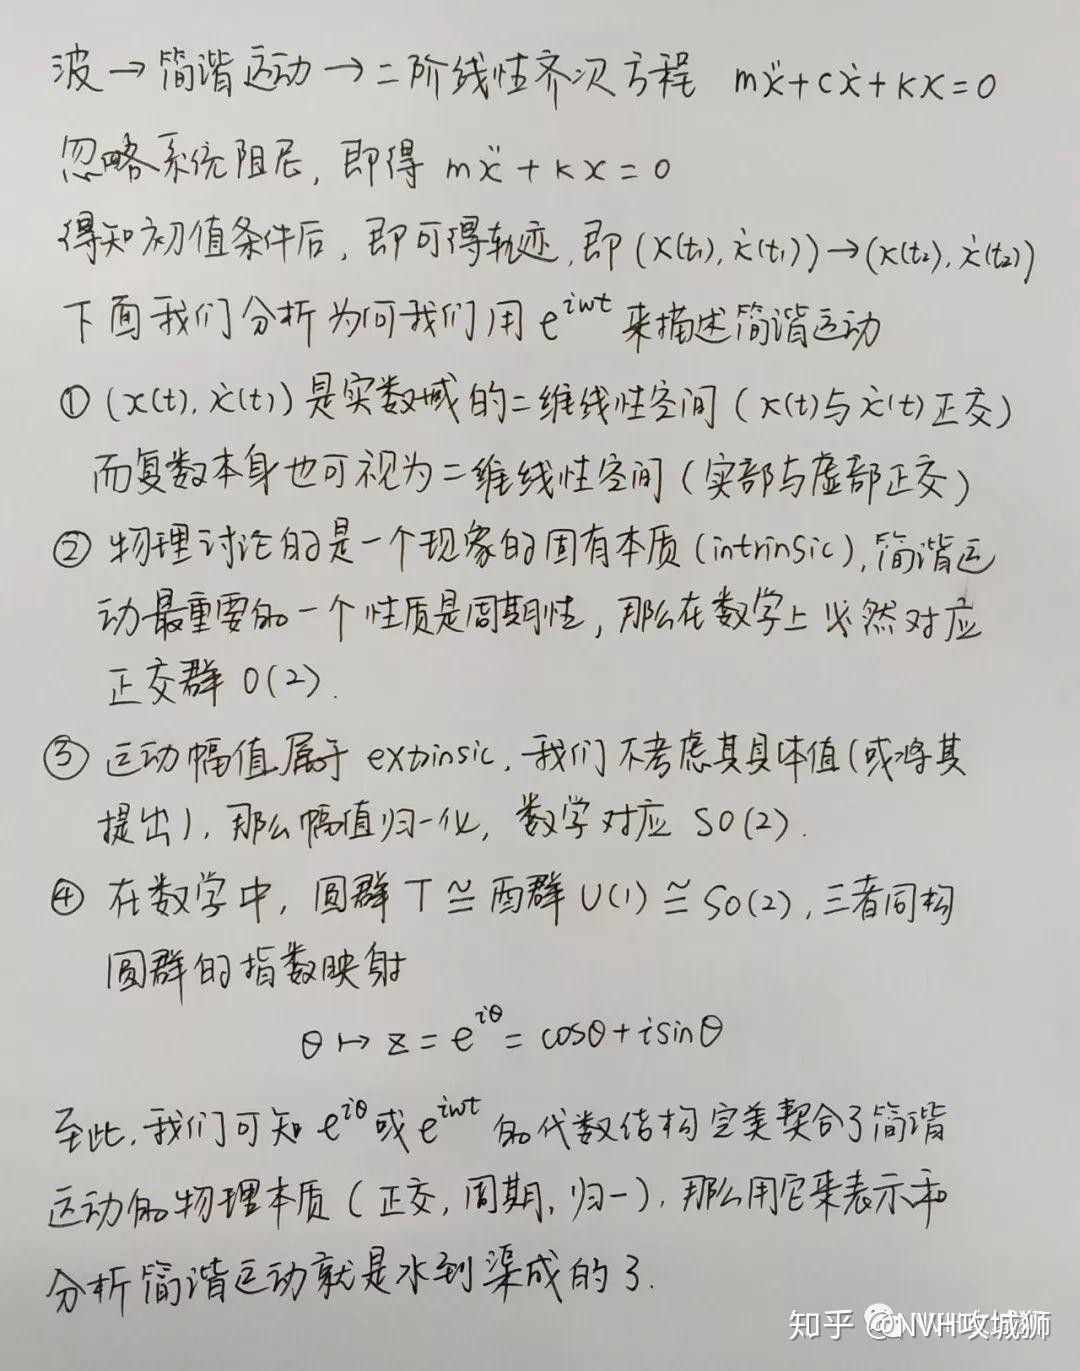 波→简谐运动→二阶线性齐次方程 mẍ+cẋ+kx=0
忽略系统阻尼,即得 mẍ+kx=0
得知初值条件后,即可得轨迹,即(x(t₁),ẋ(t₁))→(x(t₂),ẋ(t₂))
下面我们分析为何我们用 e^{iwt} 来描述简谐运动
① (x(t),ẋ(t))是实数域的二维线性空间(x(t)与ẋ(t)正交)
而复数本身也可视为二维线性空间(实部与虚部正交)
② 物理讨论的是一个现象的固有本质(intrinsic),简谐运
动最重要的一个性质是周期性,那么在数学上必然对应
正交群 O(2).
③ 运动幅值属于 extrinsic,我们不考虑其具体值(或将其
提出),那么幅值归一化,数学对应 SO(2).
④ 在数学中,圆群 T ≅ 酉群 U(1) ≅ SO(2),三者同构
圆群的指数映射
θ ↦ z = e^{iθ} = cosθ + isinθ
至此,我们可知 e^{iθ} 或 e^{iwt} 的代数结构完美契合了简谐
运动的物理本质(正交,周期,归一),那么用它来表示和
分析简谐运动就是水到渠成的了.
知乎 @NVH攻城狮